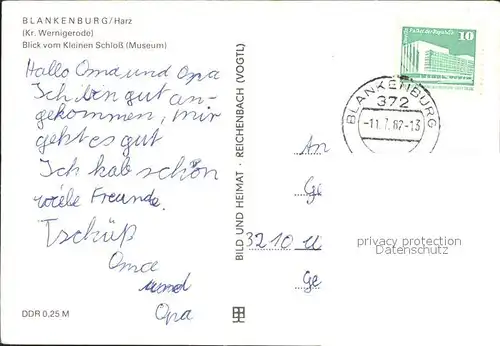 BLANKENBURG/Harz
(Kr. Wernigerode)
Blick vom Kleinen Schloß (Museum)
Hallo Oma und Opa
Ich bin gut an-
gekommen, mir
geht es gut
Ich hab schon
viele Freunde.
Tschüß
Oma
und
Opa
DDR 0,25 M
BILD UND HEIMAT · REICHENBACH (VOGTL)
Palast der Republik
10
BLANKENBURG
372
-11.7.82-13
An
Ge
3210 U
Ge
privacy protection
Datenschutz